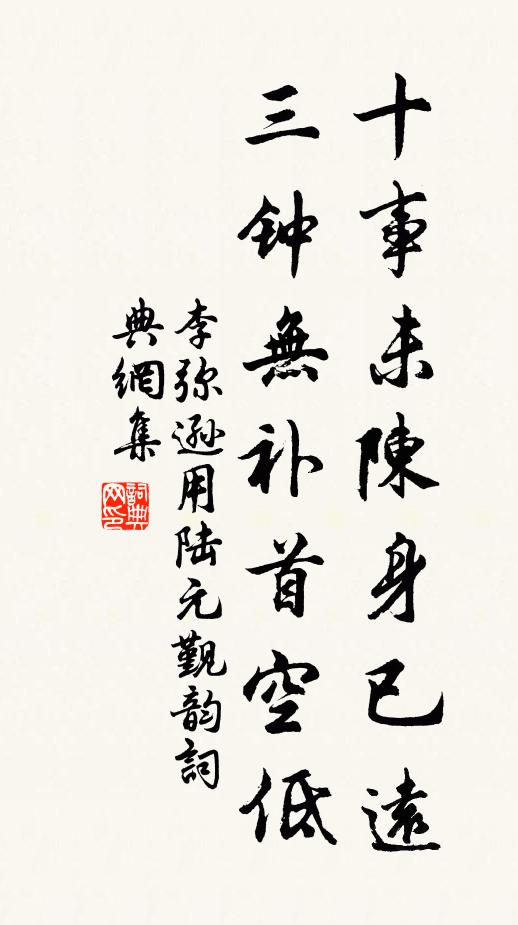 十事未陳身已遠
三钟無补首空低
李弥遜用陆元觀韵詞
典網集
詞典网印